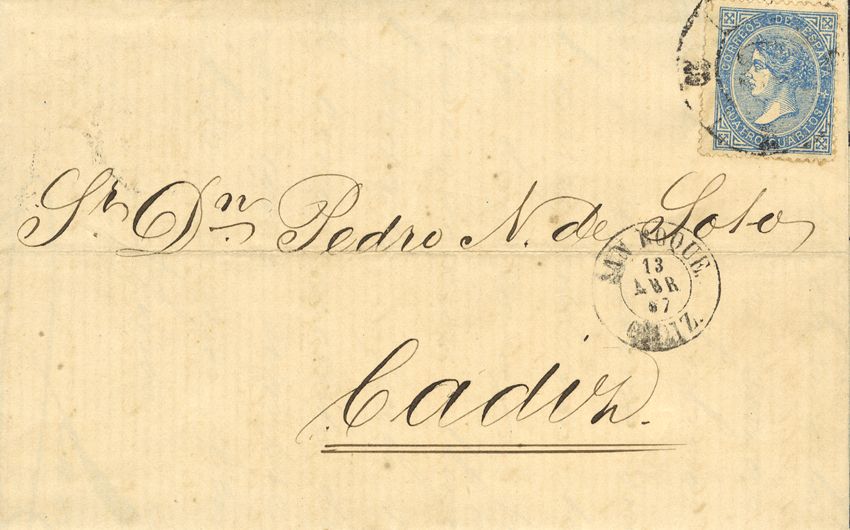 CORREOS DE ESPAÑA
CUATRO CUARTOS
Sr. Dn. Pedro N. de Soto
SAN ROQUE.
13
ABR
67
CADIZ.
Cadiz.